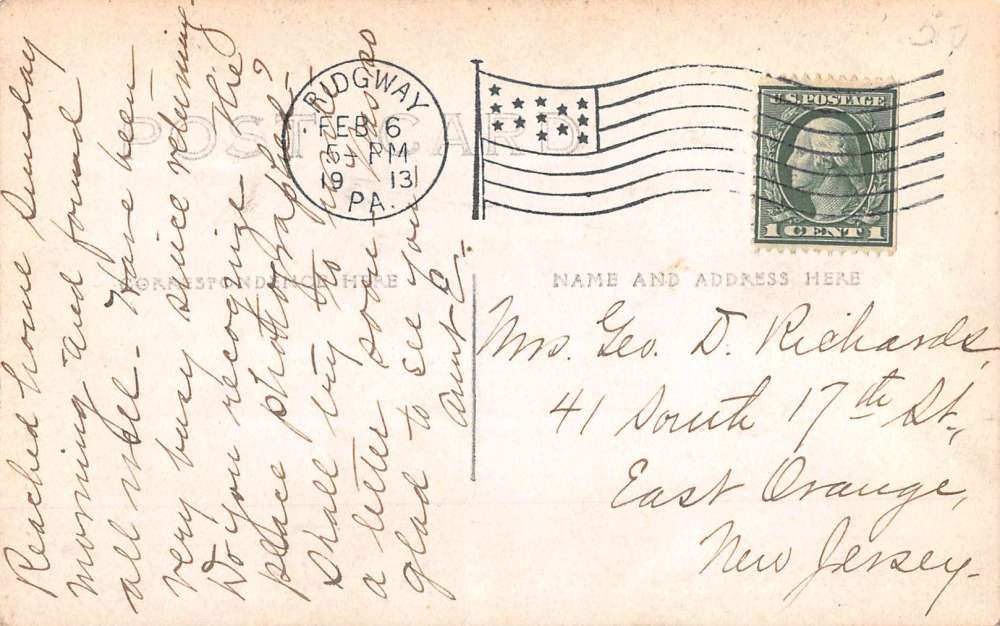 POST CARD
RIDGWAY
FEB 6
5- PM
19 13
PA.
U.S. POSTAGE
1 CENT 1
CORRESPONDENCE HERE
NAME AND ADDRESS HERE
Reached home Sunday
morning and found
all well. Have been
very busy since returning.
Do you recognize the
place photographed?
Shall try to
a letter soon. Was so
glad to see you.
Aunt E.
Mrs. Geo. D. Richards,
41 South 17th St.,
East Orange,
New Jersey.
50